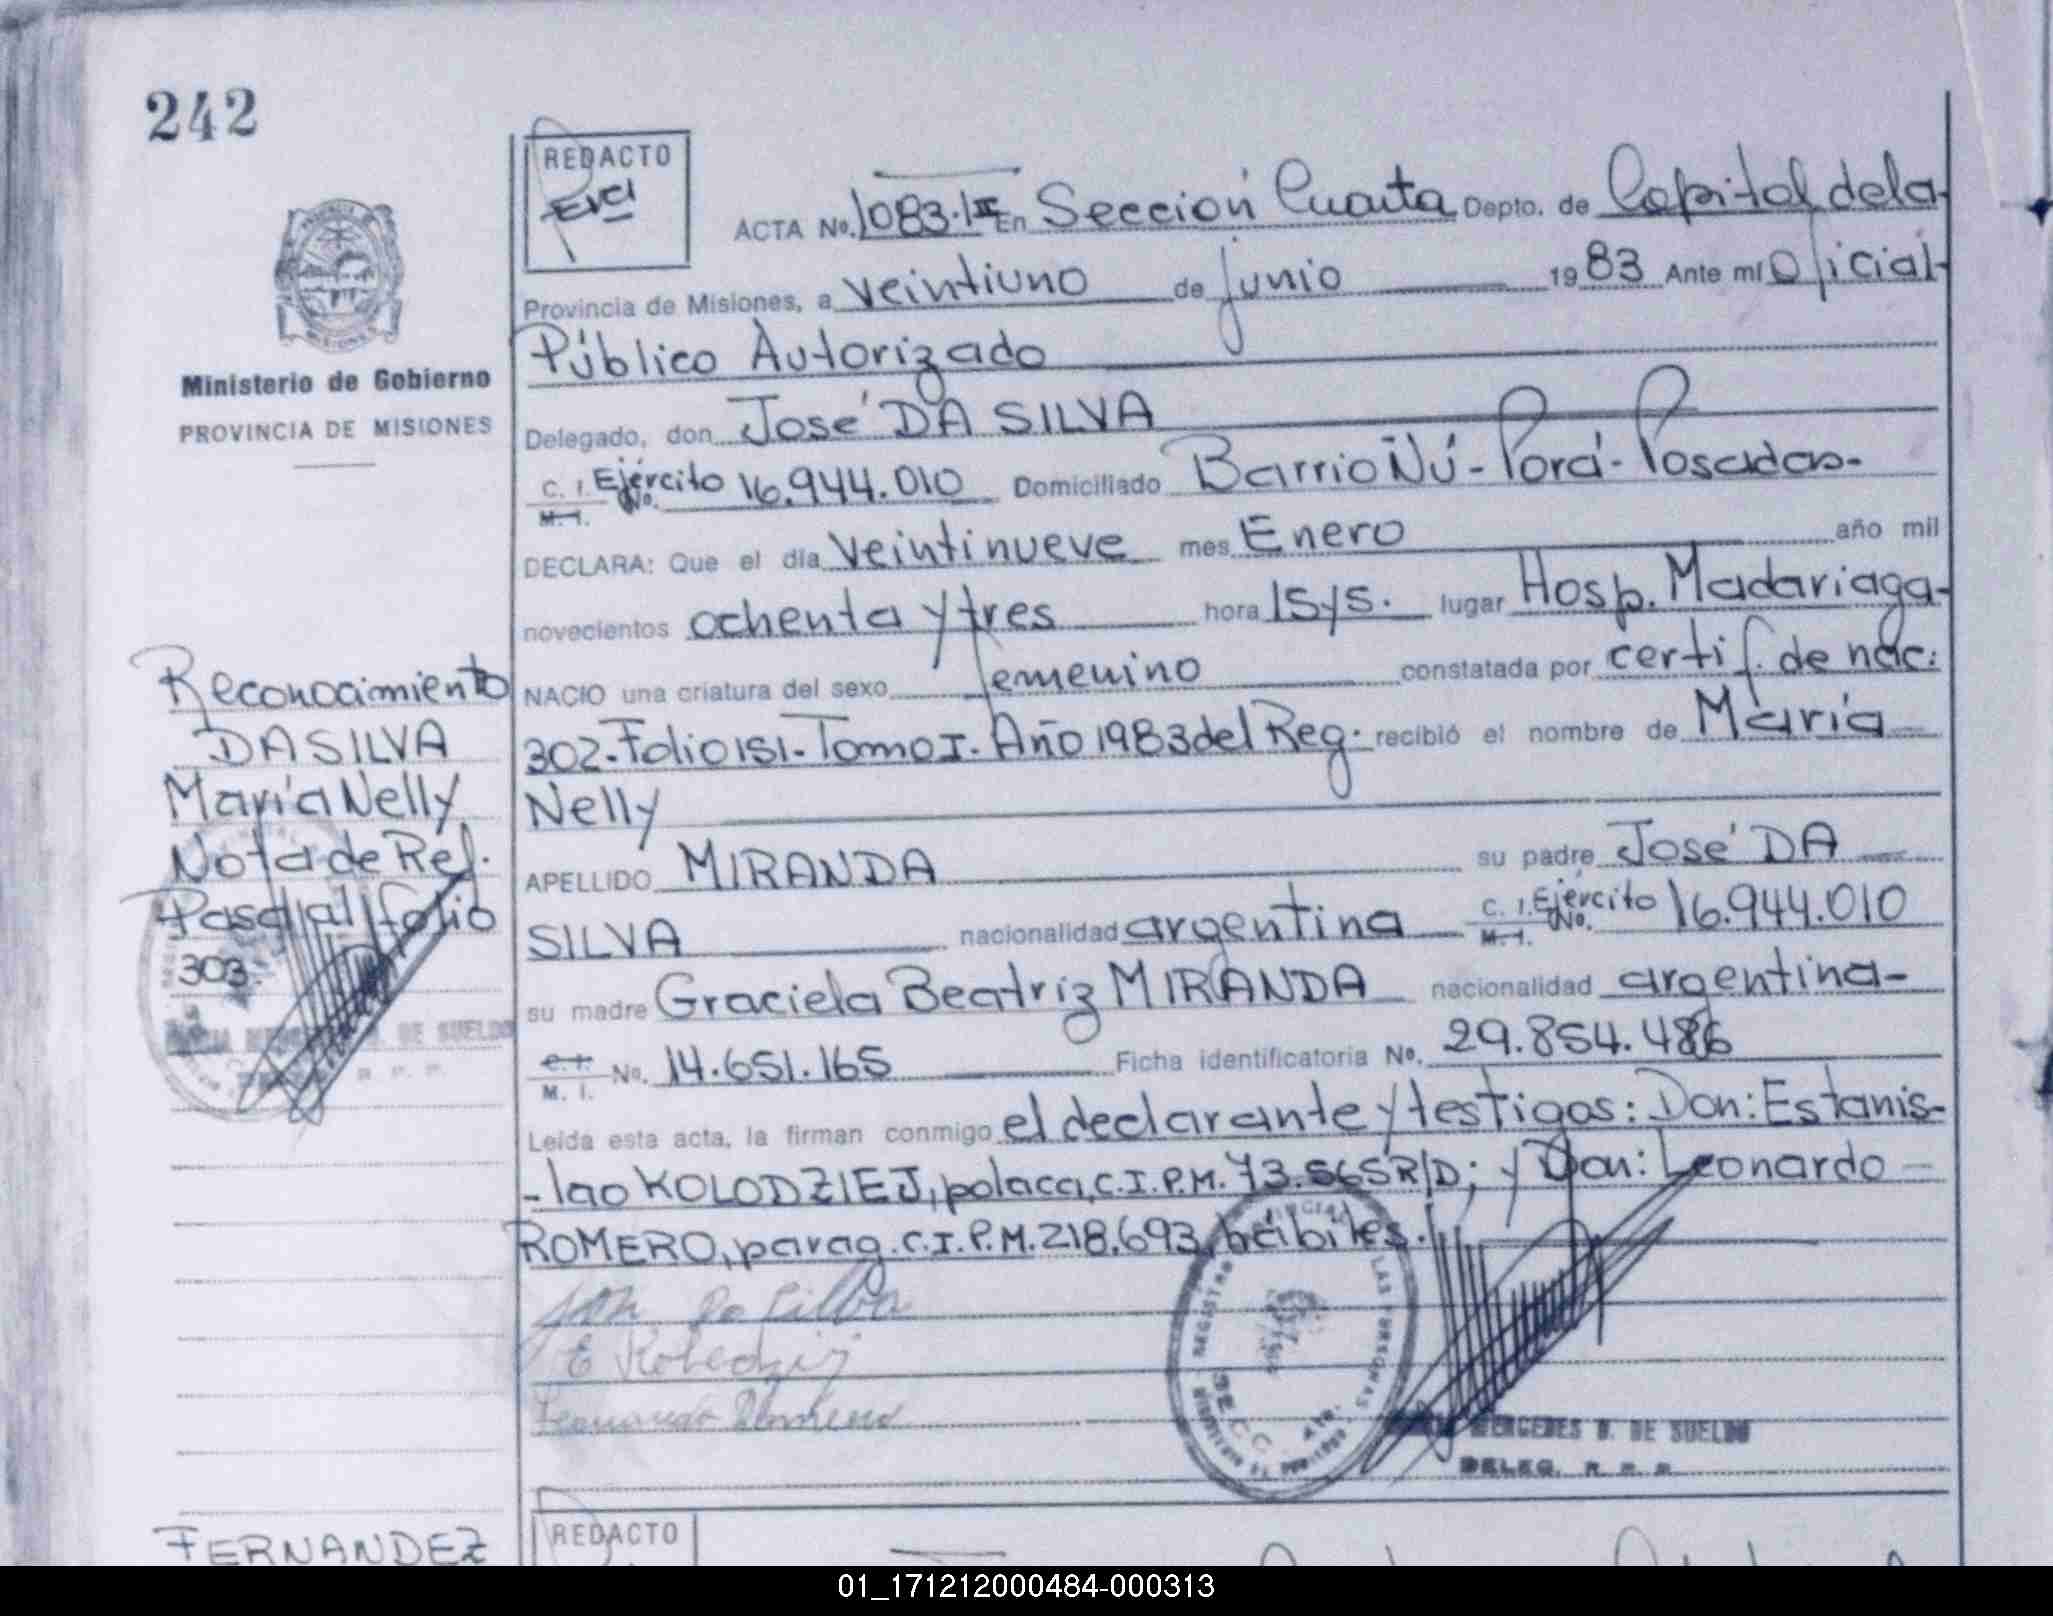 242
REDACTO
Eva
ACTA No. 1083-II En Sección Cuarta Depto. de Capital de la
Provincia de Misiones, a veintiuno de junio 1983 Ante mí Oficial
Público Autorizado
Delegado, don José DA SILVA
C. I. Ejército No. 16.944.010 Domiciliado Barrio Ñú-Porá-Posadas-
M. I.
DECLARA: Que el día veintinueve mes Enero año mil
novecientos ochenta y tres hora 15y5. lugar Hosp. Madariaga-
NACIO una criatura del sexo femenino constatada por certif. de nac:
302-Folio 151-Tomo I-Año 1983 del Reg. recibió el nombre de María
Nelly
APELLIDO MIRANDA su padre José DA
SILVA nacionalidad argentina C. I. Ejército No. 16.944.010
M. I.
su madre Graciela Beatriz MIRANDA nacionalidad argentina-
C. I. No. 14.651.165 Ficha identificatoria No. 29.854.486
M. I.
Leída esta acta, la firman conmigo el declarante y testigos: Don: Estanis-
-lao KOLODZIEJ, polaca, C.I.P.M. 73.565 R/D; y Don: Leonardo
ROMERO, parag. C.I.P.M. 218.693, hábiles.
Da Silva
E Kolodziej
MERCEDES B. DE SUELDO
DELEG. R. P. P.
Ministerio de Gobierno
PROVINCIA DE MISIONES
Reconocimiento
DA SILVA
María Nelly
Nota de Ref.
Pasa al folio
303.
DE SUELDO
R. P. P.
FERNANDEZ
REDACTO
01_171212000484-000313